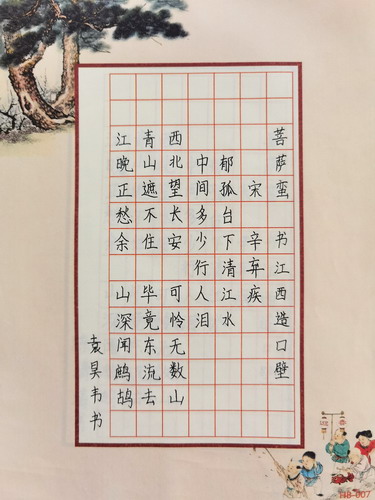 菩萨蛮 书江西造口壁
宋 辛弃疾
郁孤台下清江水
中间多少行人泪
西北望长安 可怜无数山
青山遮不住 毕竟东流去
江晚正愁余 山深闻鹧鸪
袁昊韦书
HB-007